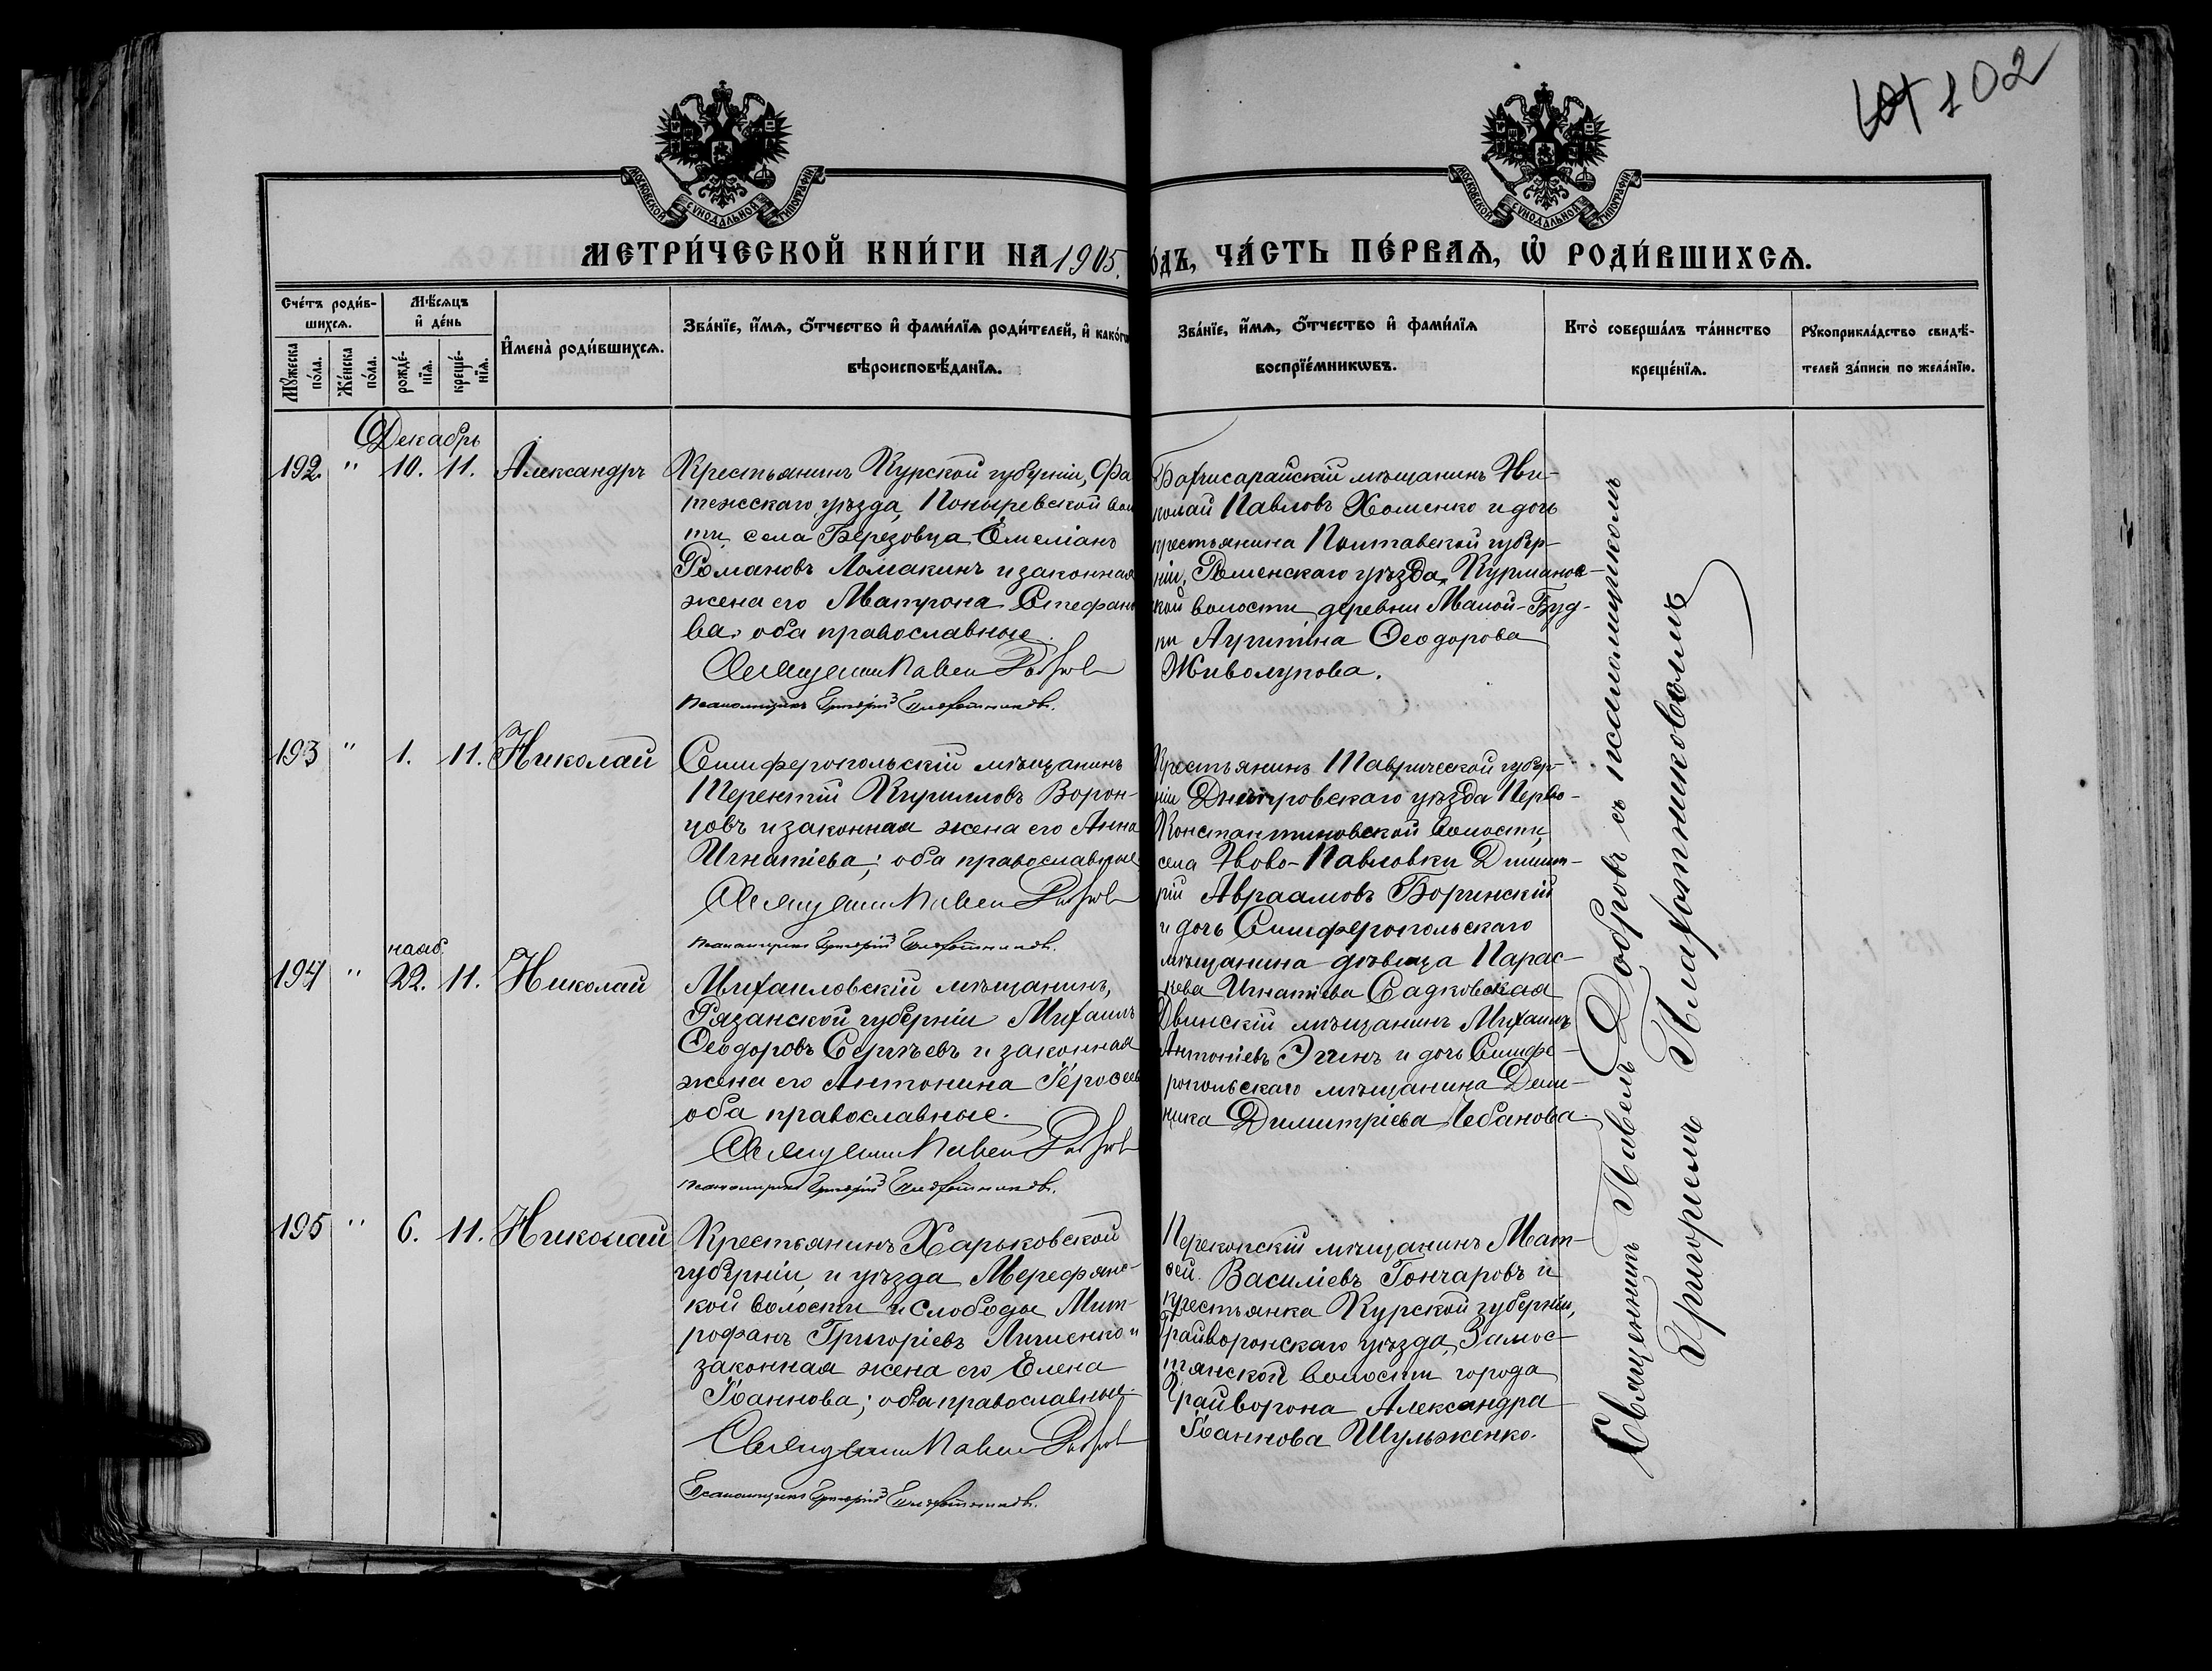 102
МОСКОВСКОЙ СѴНОДАЛЬНОЙ ТИПОГРАФІИ
МОСКОВСКОЙ СѴНОДАЛЬНОЙ ТИПОГРАФІИ
МЕТРИ́ЧЕСКОЙ КНИ́ГИ НА 1905.
О́ДЪ, ЧА́СТЬ ПЕ́РВАѦ, Ѡ҆ РОДИ́ВШИХСѦ.
Сче́тъ роди́в-
шихсѧ.
Мꙋ́жеска по́ла.
Же́нска по́ла.
Мѣ́сѧцъ
и҆ де́нь
рожде́-
нїѧ.
креще́-
нїѧ.
И҆мена̀ роди́вшихсѧ.
Зва́нїе, и҆́мѧ, ѻ҆́тчество и҆ фами́лїѧ роди́телей, и҆ како́гѡ
вѣроисповѣ́данїѧ.
Зва́нїе, и҆́мѧ, ѻ҆́тчество и҆ фами́лїѧ
воспрїе́мникѡвъ.
Кто̀ соверша́лъ та́инство
креще́нїѧ.
Рꙋкоприкла́дство свидѣ́-
телей за́писи по жела́нїю.
Декабрь
192. " 10. 11. Александръ
Крестьянинъ Курской губерніи, Фа
тежскаго уѣзда, Поныревской вол
ти, села Березовца Емеліанъ
Романовъ Ломакинъ и законная
жена его Матрона Стефано
ва, оба православные.
Священникъ Павелъ Добровъ
Псаломщикъ Григорій Плохотниковъ.
Бахчисарайскій мѣщанинъ Ни-
колай Павловъ Хоменко и дочь
крестьянина Полтавской губер-
ніи, Роменскаго уѣзда, Курманов-
ской волости, деревни Малой-Буд-
ки Агриппина Ѳеодорова
Живолупова.
193 " 1. 11. Николай
Симферопольскій мѣщанинъ
Терентій Кирилловъ Ворон-
цовъ и законная жена его Анна
Игнатіева; оба православные
Священникъ Павелъ Добровъ
Псаломщикъ Григорій Плохотниковъ.
Крестьянинъ Таврической губер-
ніи Днепровскаго уѣзда Перво-
Константиновской волости,
села Ново-Павловки Димит-
рій Авраамовъ Боринскій
и дочь Симферопольскаго
мѣщанина дѣвица Парас-
кева Игнатіева Садковская
нояб.
194 " 22. 11. Николай
Михаиловскій мѣщанинъ,
Рязанской губерніи Михаилъ
Ѳеодоровъ Сергѣевъ и законная
жена его Антонина
оба православные.
Священникъ Павелъ Добровъ
Псаломщикъ Григорій Плохотниковъ.
Двинскій мѣщанинъ Михаилъ
Антоніевъ и дочь Симфе-
ропольскаго мѣщанина Дом-
ника Димитріева Чебанова.
195 " 6. 11. Николай
Крестьянинъ Харьковской
губерніи, и уѣзда Мерефянс-
кой волости и слободы Мит-
рофанъ Григоріевъ и
законная жена его Елена
Іоаннова; оба православные.
Священникъ Павелъ Добровъ
Псаломщикъ Григорій Плохотниковъ.
Перекопскій мѣщанинъ Мат-
ѳей Василіевъ Гончаровъ и
крестьянка Курской губерніи,
Грайворонскаго уѣзда, Замос-
тянской волости города
Грайворона Александра
Іоаннова Шульженко.
Священникъ Павелъ Добровъ съ псаломщикомъ
Григоріемъ Плахотниковомъ